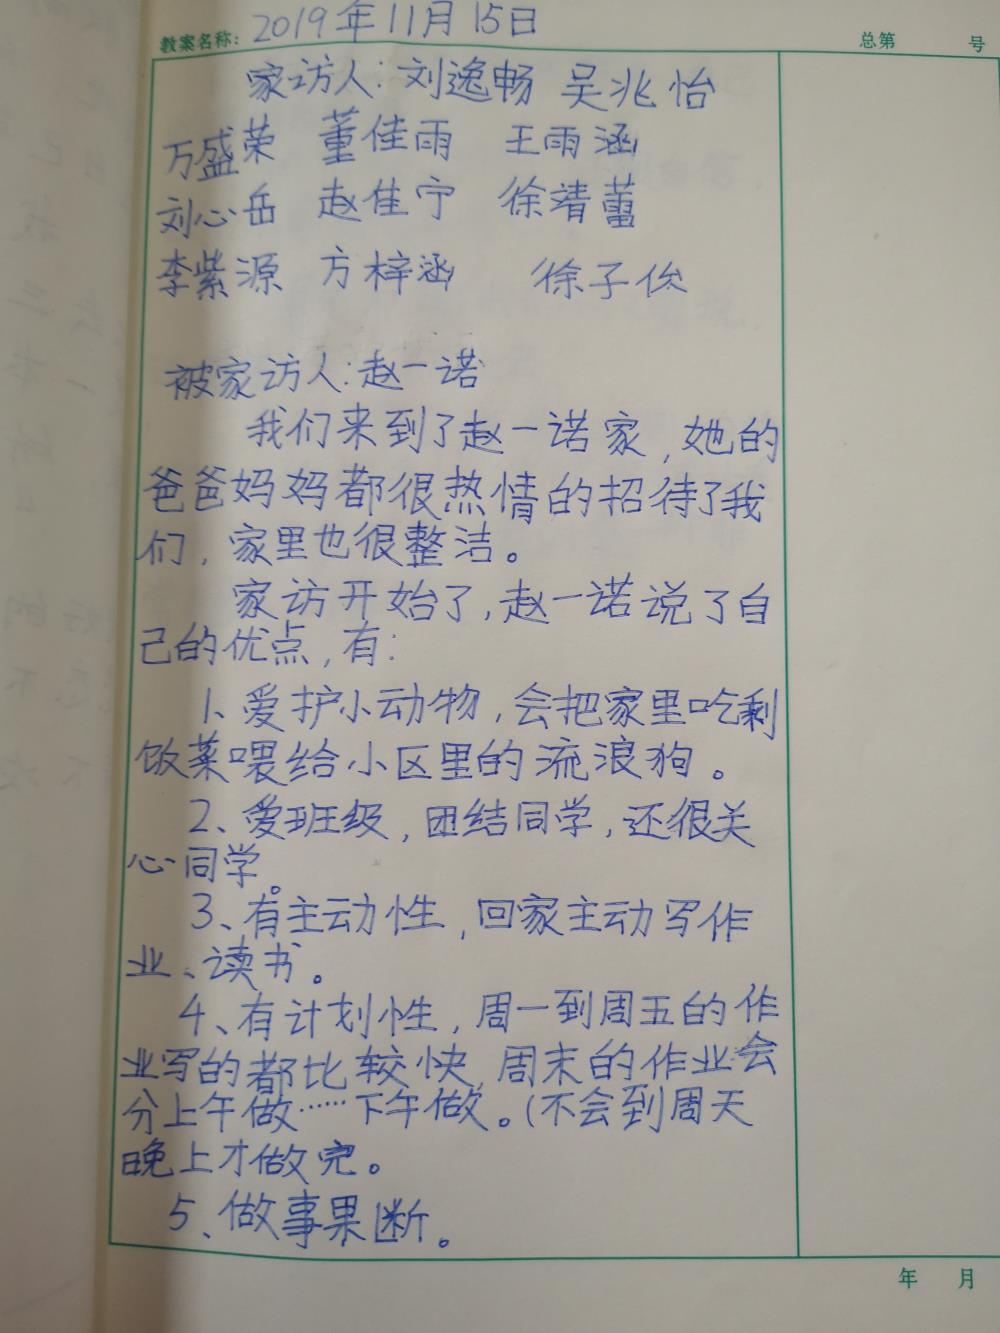 教案名称：2019年11月15日
总第 号
家访人：刘逸畅 吴兆怡
万盛荣 董佳雨 王雨涵
刘心岳 赵佳宁 徐靖蕾
李紫源 方梓涵 徐子俊
被家访人：赵一诺
我们来到了赵一诺家，她的
爸爸妈妈都很热情的招待了我
们，家里也很整洁。
家访开始了，赵一诺说了自
己的优点，有：
1、爱护小动物，会把家里吃剩
饭菜喂给小区里的流浪狗。
2、爱班级，团结同学，还很关
心同学。
3、有主动性，回家主动写作
业、读书。
4、有计划性，周一到周五的作
业写的都比较快，周末的作业会
分上午做……下午做。（不会到周天
晚上才做完。
5、做事果断。
年 月